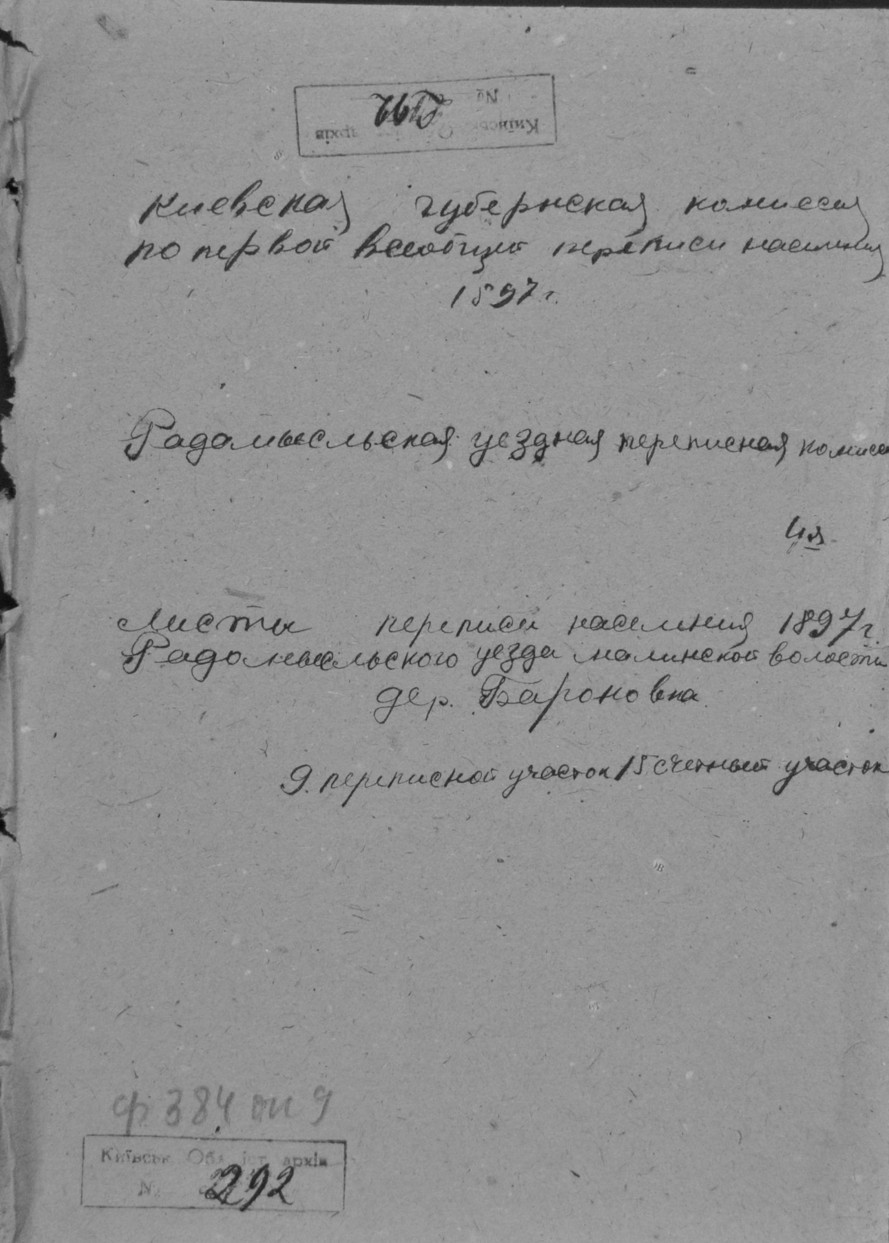 Київськ Обл. архів
№ 292
Киевская губернская комиссия
по первой всеобщей переписи населения
1897 г.
Радомысльская уездная переписная комисси
4я
Листы переписи населения 1897 г.
Радомысльского уезда малинской волости
дер. Бароновка
9. переписной участок 15 счетный участок
ф 384 оп 9
Київськ Обл. іст. архів
№ 292